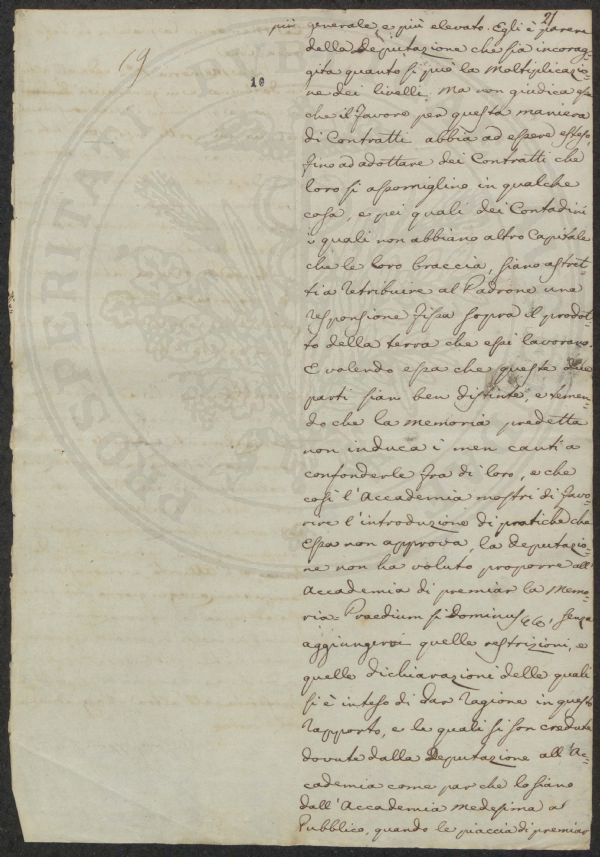 21
19
10
più generale e più elevato. Egli è parere
della Deputazione che sia incorag-
gita quanto si può la Moltiplicazio-
ne dei livelli. Ma non giudica già
che il favore per questa maniera
di Contratti abbia ad essere esteso
fino ad adottare dei Contratti che
loro si assomiglino in qualche
cosa, e pei quali dei Contadini
i quali non abbiano altro Capitale
che le loro braccia, siano astret-
ti a retribuire al Padrone una
responsione fissa sopra il prodot-
to della terra che essi lavorano.
E volendo essa che queste due
parti sian ben distinte, e temen-
do che la memoria predetta
non induca i men cauti a
confonderle fra di loro, e che
così l'Accademia mostri di favo-
rire l'introduzione di pratiche che
Essa non approva, la Deputazio-
ne non ha voluto proporre all'
Accademia di premiar la Memo-
ria = Praedium si Dominus &c, senza
aggiungervi quelle restrizioni, e
quelle dichiarazioni delle quali
si è inteso di dar ragione in questo
rapporto, e le quali si son credute
dovute dalla Deputazione all'Ac-
cademia come par che lo siano
dall'Accademia medesima al
Pubblico, quando le piaccia di premiar
PROSPERITATI PUBLICAE